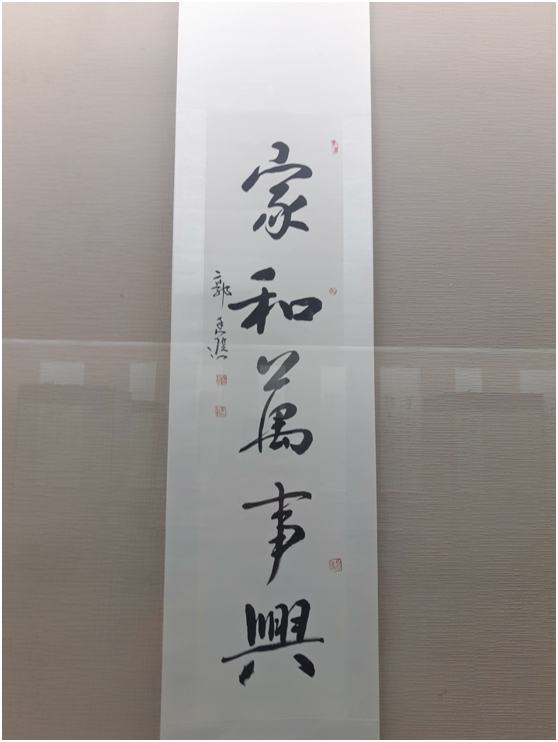 家和萬事興
郭